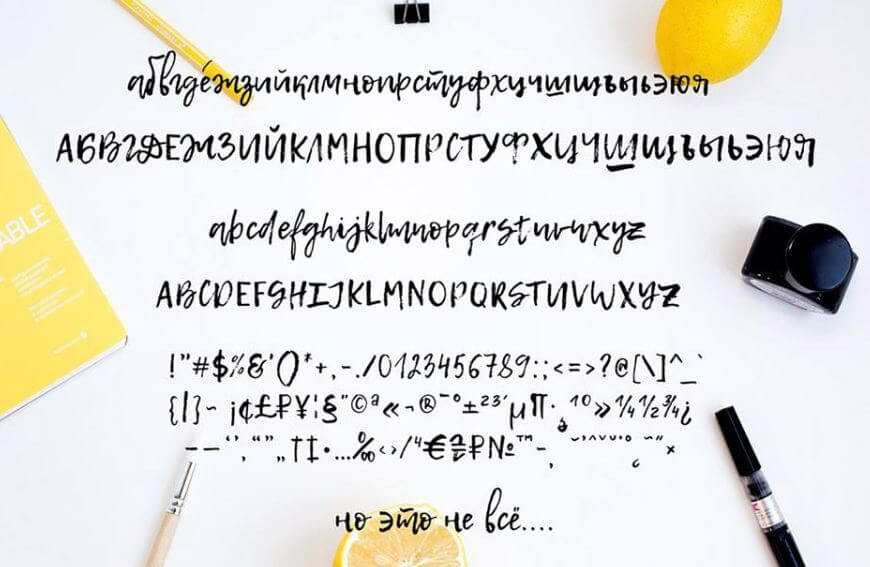 абвгдежзийклмнопрстуфхцчшщъыьэюя
АБВГДЕЖЗИЙКЛМНОПРСТУФХЦЧШЩЪЫЬЭЮЯ
abcdefghijklmnopqrstuvwxyz
ABCDEFGHIJKLMNOPQRSTUVWXYZ
!"#$%&'()*+,-./0123456789:;<=>?@[\]^_`
{|}~ ¡¢£₽¥¦§¨©ª«¬®¯°±²³´µ¶·¸¹º»¼½¾¿
–—‘’‚“”„†‡•…‰‹›/⁴€₴₽№™−
но это не всё....
ABLE